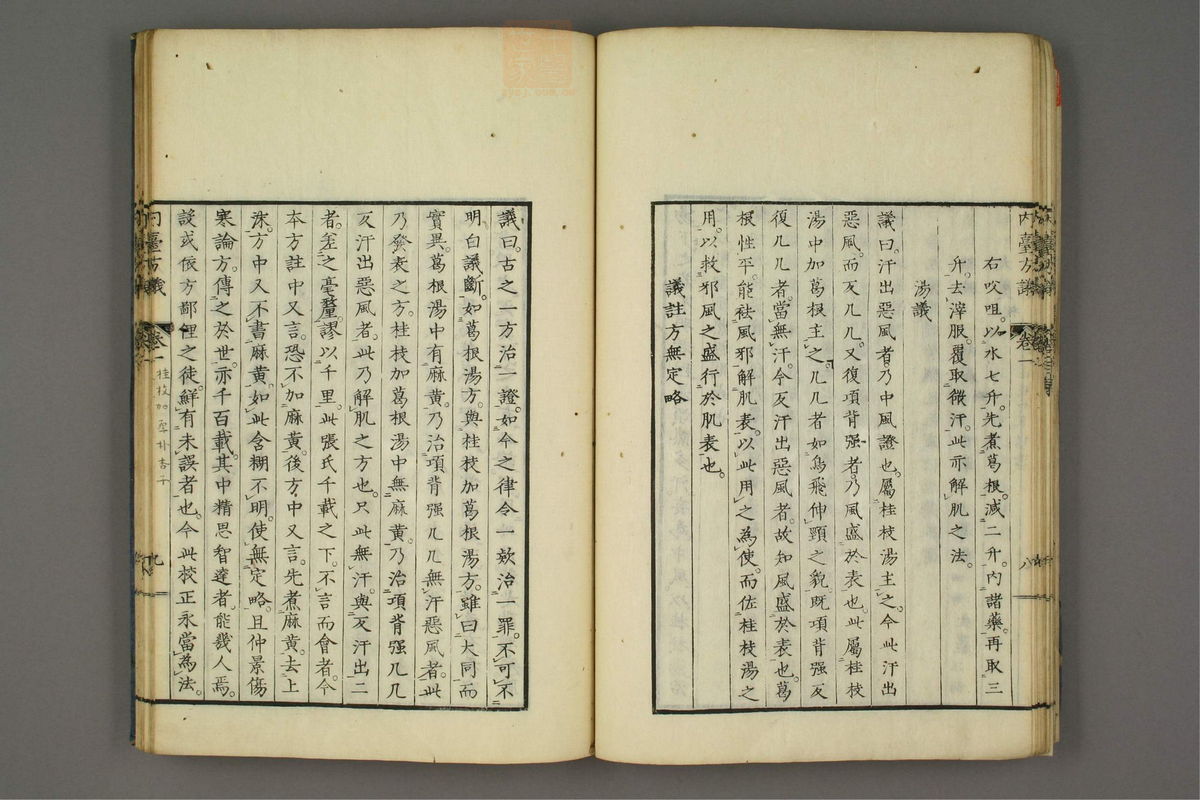 右㕮咀以水七升先煮葛根減二升内諸藥再取三
升去滓服覆取微汗此亦解肌之法
湯議
議曰汗出惡風者乃中風證也屬桂枝湯主之今此汗出
惡風而反几几又復項背强者乃風盛於表也此屬桂枝
湯中加葛根主之几几者如鳥飛伸頸之貌既項背强反
復几几者當無汗今反汗出惡風者故知風盛於表也葛
根性平能袪風邪解肌表以此用之為使而佐桂枝湯之
用以救邪風之盛行於肌表也
議註方無定略
内臺方議
卷一
八
議曰古之一方治一證如今之律令一欵治一罪不可不
明白議斷如葛根湯方與桂枝加葛根湯方雖曰大同而
實異葛根湯中有麻黄乃治項背强几几無汗惡風者此
乃發表之方桂枝加葛根湯中無麻黄乃治項背强几几
反汗出惡風者此乃解肌之方也只此無汗與反汗出二
者差之毫釐謬以千里此張氏千載之下不言而會者今
本方註中又言恐不加麻黄後方中又言先煮麻黄去上
沫方中又不書麻黄如此含糊不明使無定略且仲景傷
寒論方傳之於世亦千百載其中精思智達者能幾人焉
談或依方鄙俚之徒鮮有未誤者也今此校正永當為法
内臺方議
卷一
桂枝加厚朴杏子
九